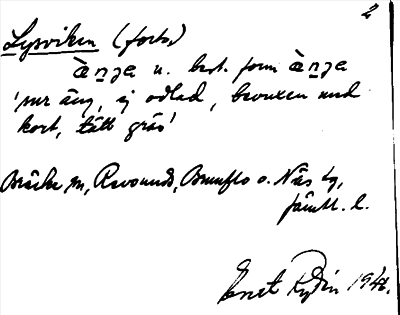 2
Lysviken (forts.)
àn̲ɟa u. best. form àn̲ɟa
'mr äng, ej odlad, bevuxen med
kort, tätt gräs'
Bräcke m, Revsunds, Brunflo o. Näs tg,
jämtl. l.
Ernst Rydin 1948.